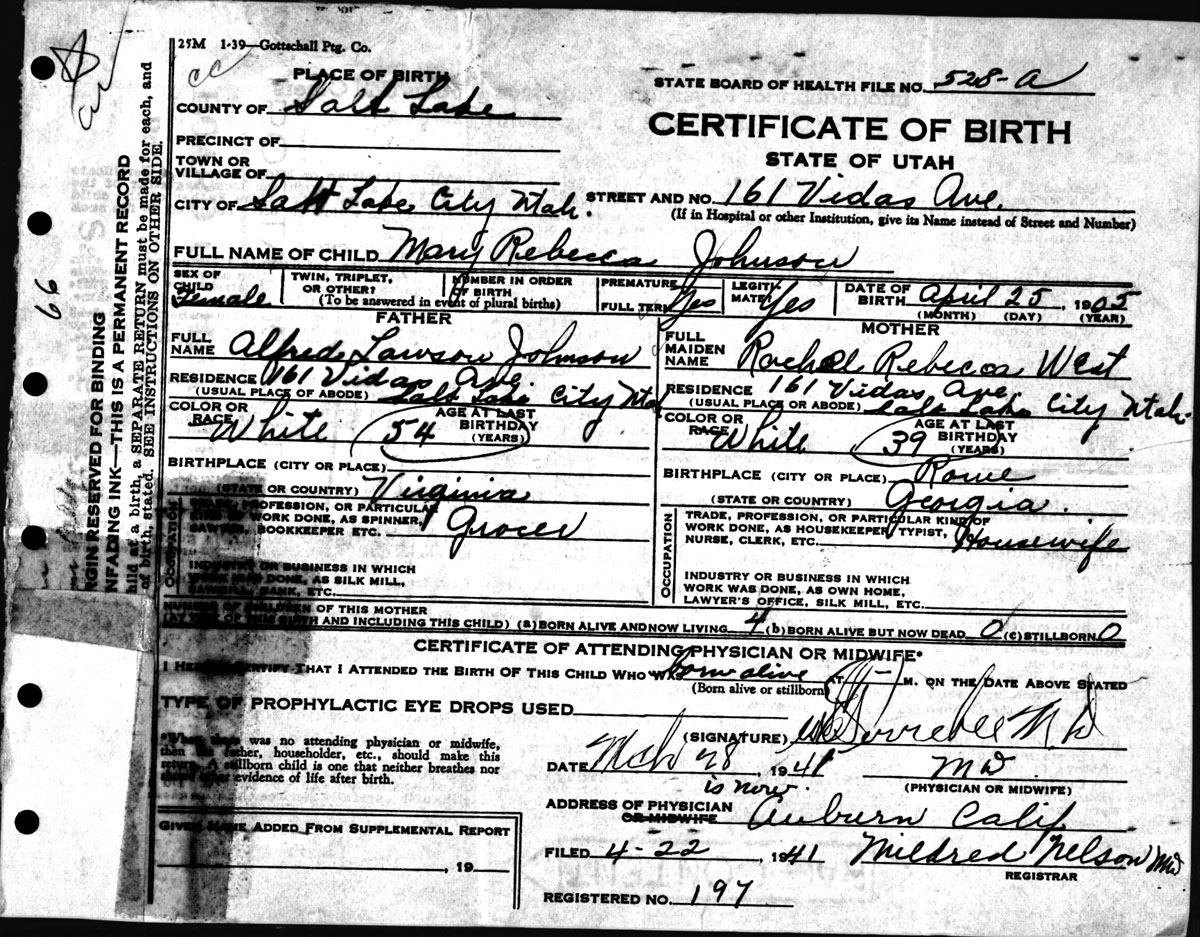 25M 1-39—Gottschall Ptg. Co.
cc
PLACE OF BIRTH
STATE BOARD OF HEALTH FILE NO. 528-A
COUNTY OF Salt Lake
CERTIFICATE OF BIRTH
PRECINCT OF
STATE OF UTAH
TOWN OR
VILLAGE OF
CITY OF Salt Lake City Utah. STREET AND NO. 161 Vidas Ave.
(If in Hospital or other Institution, give its Name instead of Street and Number)
FULL NAME OF CHILD Mary Rebecca Johnson
SEX OF CHILD Female
TWIN, TRIPLET, OR OTHER?
NUMBER IN ORDER OF BIRTH
(To be answered in event of plural births)
PREMATURE
FULL TERM Yes
LEGITIMATE? Yes
DATE OF BIRTH April 25, 1905
(MONTH) (DAY) (YEAR)
FATHER
FULL NAME Alfred Lawson Johnson
RESIDENCE 161 Vidas Ave.
(USUAL PLACE OF ABODE) Salt Lake City Utah
COLOR OR RACE White 54 AGE AT LAST BIRTHDAY (YEARS)
BIRTHPLACE (CITY OR PLACE)
(STATE OR COUNTRY) Virginia
OCCUPATION
TRADE, PROFESSION, OR PARTICULAR
KIND OF WORK DONE, AS SPINNER,
SAWYER, BOOKKEEPER ETC. Grocer
INDUSTRY OR BUSINESS IN WHICH
WORK WAS DONE, AS SILK MILL,
SAWMILL, BANK, ETC.
MOTHER
FULL MAIDEN NAME Rachel Rebecca West
RESIDENCE 161 Vidas Ave
(USUAL PLACE OF ABODE) Salt Lake City Utah.
COLOR OR RACE White 39 AGE AT LAST BIRTHDAY (YEARS)
BIRTHPLACE (CITY OR PLACE) Rome
(STATE OR COUNTRY) Georgia.
OCCUPATION
TRADE, PROFESSION, OR PARTICULAR KIND OF
WORK DONE, AS HOUSEKEEPER TYPIST,
NURSE, CLERK, ETC. Housewife
INDUSTRY OR BUSINESS IN WHICH
WORK WAS DONE, AS OWN HOME,
LAWYER'S OFFICE, SILK MILL, ETC.
NUMBER OF CHILDREN OF THIS MOTHER
(AT TIME OF THIS BIRTH AND INCLUDING THIS CHILD) (a) BORN ALIVE AND NOW LIVING 4 (b) BORN ALIVE BUT NOW DEAD 0 (c) STILLBORN 0
CERTIFICATE OF ATTENDING PHYSICIAN OR MIDWIFE*
I HEREBY CERTIFY THAT I ATTENDED THE BIRTH OF THIS CHILD WHO WAS born alive AT M. ON THE DATE ABOVE STATED
(Born alive or stillborn)
TYPE OF PROPHYLACTIC EYE DROPS USED
(SIGNATURE) M D
*When there was no attending physician or midwife,
then the father, householder, etc., should make this
return. A stillborn child is one that neither breathes nor
shows other evidence of life after birth.
DATE Mch 28, 1941 MD
(PHYSICIAN OR MIDWIFE)
is now.
ADDRESS OF PHYSICIAN
OR MIDWIFE Auburn Calif.
GIVEN NAME ADDED FROM SUPPLEMENTAL REPORT
, 19
FILED 4-22, 1941 Mildred Nelson MD
REGISTRAR
REGISTERED NO. 197
66
MARGIN RESERVED FOR BINDING
UNFADING INK—THIS IS A PERMANENT RECORD
child at a birth, a SEPARATE RETURN must be made for each, and
of birth, stated. SEE INSTRUCTIONS ON OTHER SIDE.